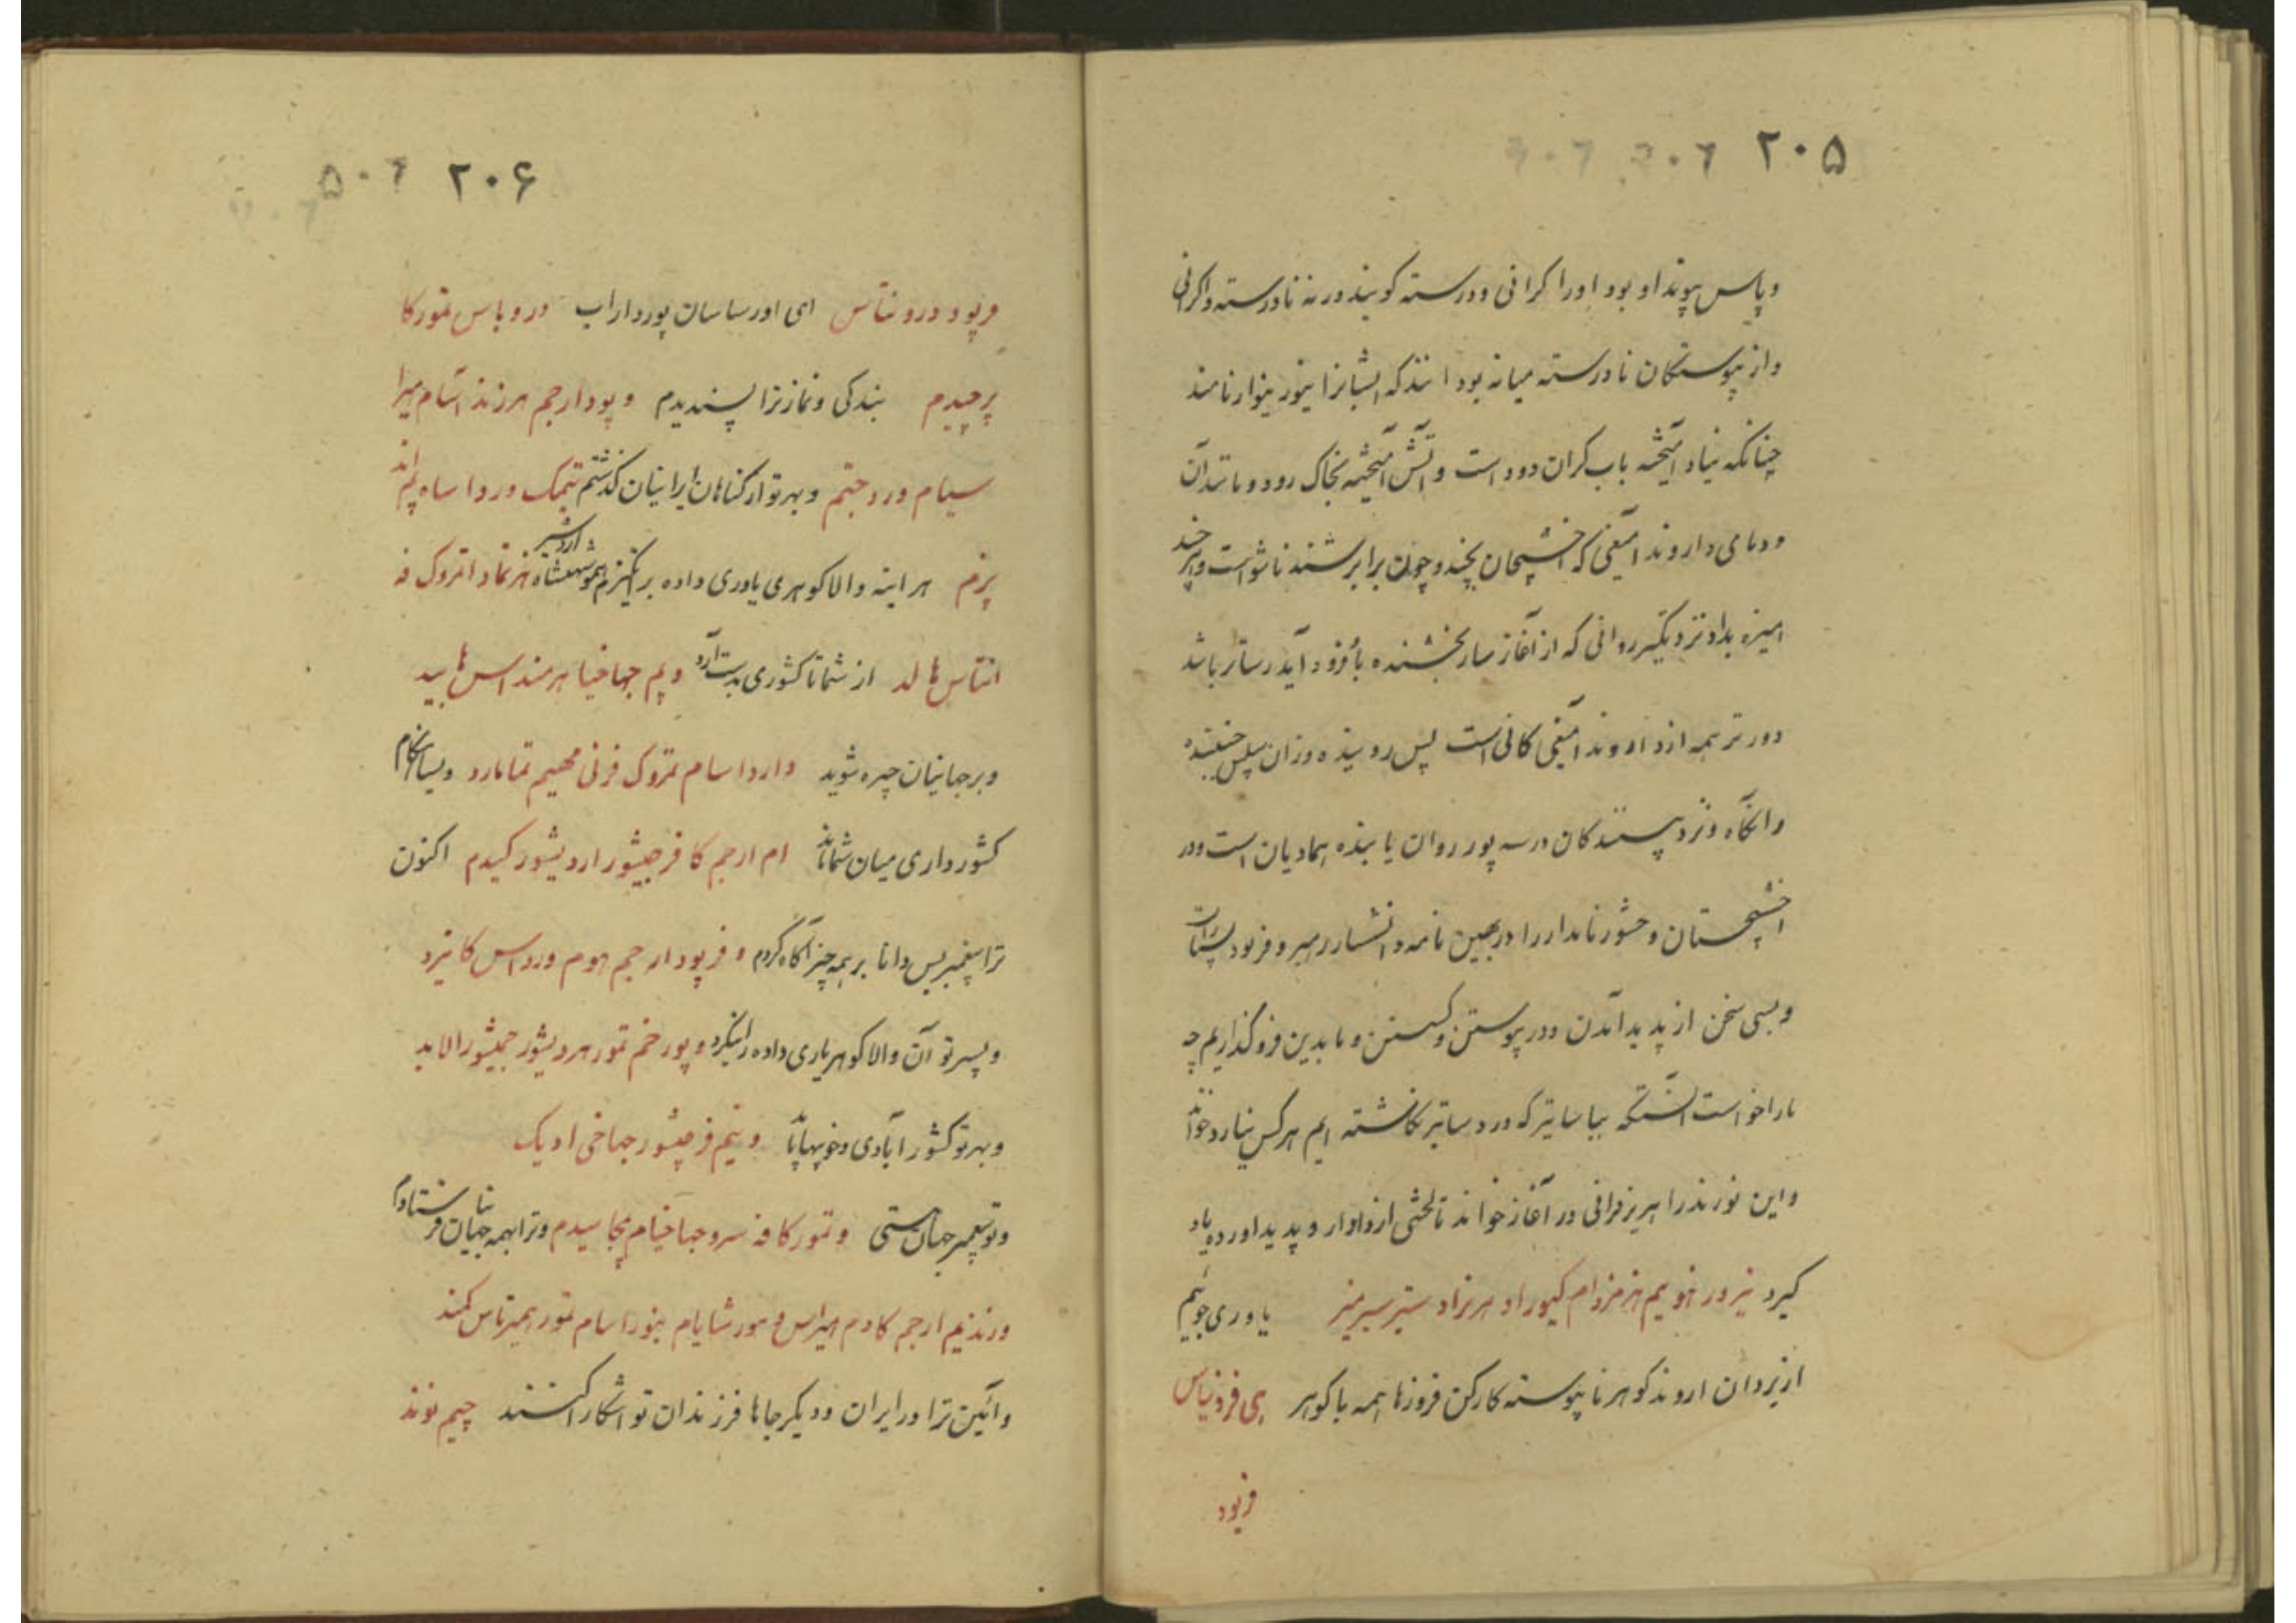 ۲۰۵ ۲۰۶
و پاس پیوند او بود او را کرانی و درسته کویند ورنه نادرسته و اکرانی
و از پیوستکان نادرسته میانه بود انند که ایشانرا نیور نیوار نامند
چنانکه نیاد آمیخته باب کران دود است و آتش آمیخته بخاک رود و مانند آن
و دمای داروند
امیزه بداد نزدیکتر روانی که از آغاز سار بخشنده بأو فرود آید رساتر باشد
دورتر همه از داروند امیغی کانی است پس روینده وزان پس جنبنده
وانگاه و نزد پسندکان درسه پور روان یابنده همادیان است ودر
اخشیجستان وخشور نامدار را در بهین نامه و انشار رهبر و فرنود بسیارست
و بسی سخن از پدید آمدن و در پیوستن و کسستن و ما بدین فرو کذاریم چه
ما را خواست انستکه بیاسایتر که در دساتیر نکاشته ایم هر کس نیارد خواند
و این نورند را بریز فرانی در آغاز خواند تا لختی از وادار و پدید اورده یاد
کیرد نیرور هنو یم هزمزدام کیوراد هرنراد ستیر سبرمنیر یاوری جوئیم
از یزدان اروند کوهر ناپیوسته کارکن فروزها همه با کوهر پی فرونیاس
فرپود
۲۰۶ ۵۰۶
فرپود درونتاس ای اور ساسان پور داراب دروباس تمور کا
پرچیدم بندکی و نماز ترا پسندیدم و پودارجم هرزند اسام میرا
سیام ورد جتم و بهر تو از کناهان ایرانیان کذشتم تیمک وردا ساه یم اند
پرزم هراینه والا کوهری یاوری داده برانکیزم همو شهنشاه اردشیر هزنماد انروک فه
انتاس ها لد از شما تا کشوری بدست آرد ویم جهاخیا هرمند اس ها بید
و بر جهانیان چیره شوید واردا سام تمروک فرنی مهیم تمامارد و بسا هنکام
کشورداری میان شما ماند ام ارجم کا فرجیشور اردیشور کیدم اکنون
ترا پیغمبر بس دانا بر همه چیز آگاه کردم و فرپود ارجم هوم ورداس کا یزد
و پسر تو آن والا کوهر یاری داده را نیکرد و پور خم تمور هردیشور جمیشور الابد
و بهر تو کشور آبادی و خوبیها باید وینم فرجیشور جهاخی ادیک
و تو پیغمبر جهان هستی و تمور کا فه سرو جهاخیام بجاسیدم و ترا بهمه جهانیان فرستادم
ورندیم ارجم کادم هیراس و هورشایام نبورا سام تمور همیرتاس کمند
و آئین ترا در ایران و دیکر جاها فرزندان تو اشکارا کنند چیم نوند